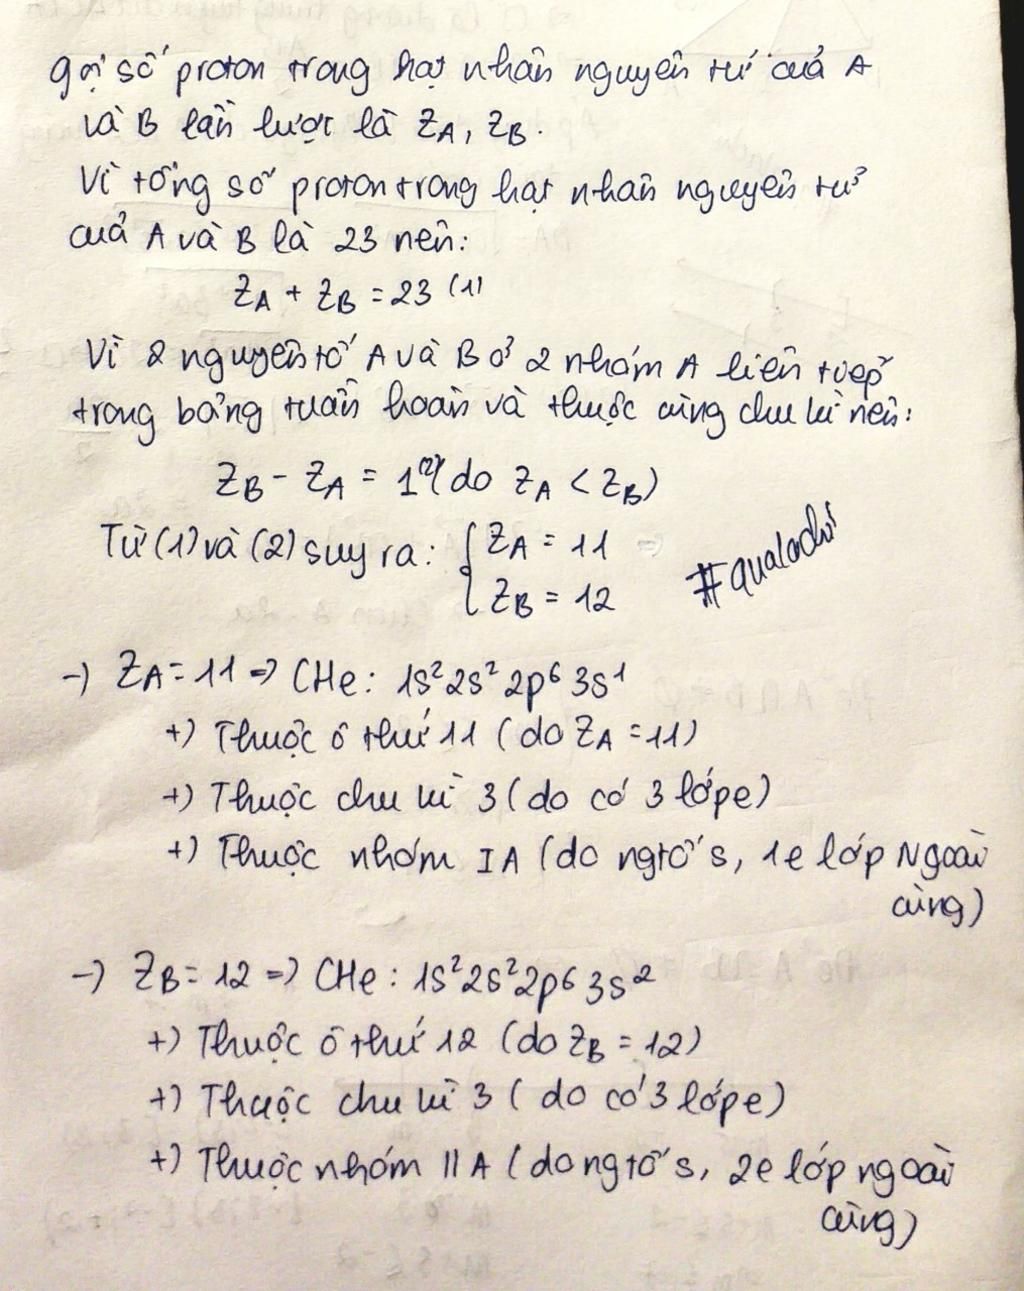 Gọi số proton trong hạt nhân nguyên tử của A
và B lần lượt là ZA, ZB.
Vì tổng số proton trong hạt nhân nguyên tử
của A và B là 23 nên:
ZA + ZB = 23 (1)
Vì 2 nguyên tố A và B ở 2 nhóm A liên tiếp
trong bảng tuần hoàn và thuộc cùng chu kì nên:
ZB - ZA = 1 (2) (do ZA < ZB)
Từ (1) và (2) suy ra: { ZA = 11
ZB = 12
#qualachi
-) ZA = 11 => CHe: 1s² 2s² 2p⁶ 3s¹
+) Thuộc ô thứ 11 (do ZA = 11)
+) Thuộc chu kì 3 (do có 3 lớp e)
+) Thuộc nhóm IA (do ngtố s, 1e lớp Ngoài
cùng)
-) ZB = 12 => CHe: 1s² 2s² 2p⁶ 3s²
+) Thuộc ô thứ 12 (do ZB = 12)
+) Thuộc chu kì 3 (do có 3 lớp e)
+) Thuộc nhóm IIA (do ngtố s, 2e lớp ngoài
cùng)